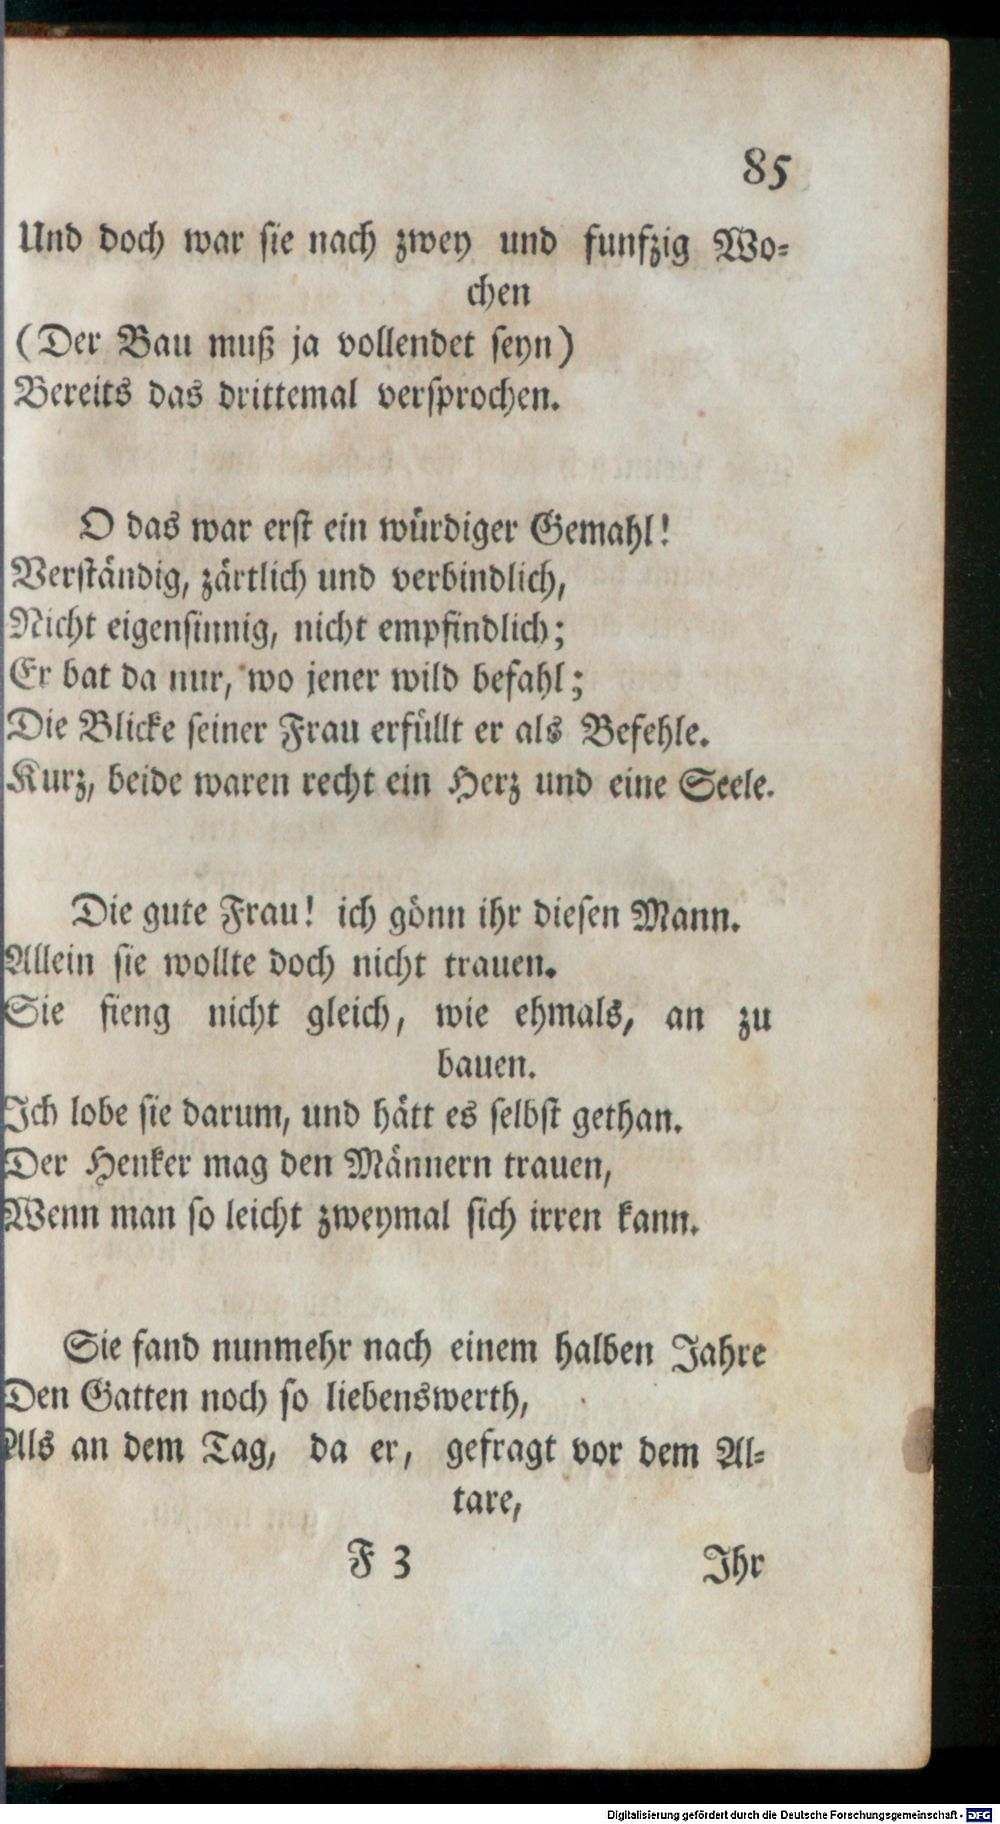 85
Und doch war sie nach zwey und funfzig Wo-
chen
(Der Bau muß ja vollendet seyn)
Bereits das drittemal versprochen.
O das war erst ein würdiger Gemahl!
Verständig, zärtlich und verbindlich,
Nicht eigensinnig, nicht empfindlich;
Er bat da nur, wo jener wild befahl;
Die Blicke seiner Frau erfüllt er als Befehle.
Kurz, beide waren recht ein Herz und eine Seele.
Die gute Frau! ich gönn ihr diesen Mann.
Allein sie wollte doch nicht trauen.
Sie fieng nicht gleich, wie ehmals, an zu
bauen.
Ich lobe sie darum, und hätt es selbst gethan.
Der Henker mag den Männern trauen,
Wenn man so leicht zweymal sich irren kann.
Sie fand nunmehr nach einem halben Jahre
Den Gatten noch so liebenswerth,
Als an dem Tag, da er, gefragt vor dem Al-
tare,
F 3 Ihr
Digitalisierung gefördert durch die Deutsche Forschungsgemeinschaft - DFG